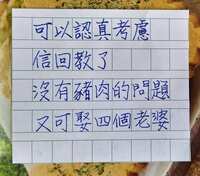 可以認真考慮
信回教了
沒有豬肉的問題
又可娶四個老婆